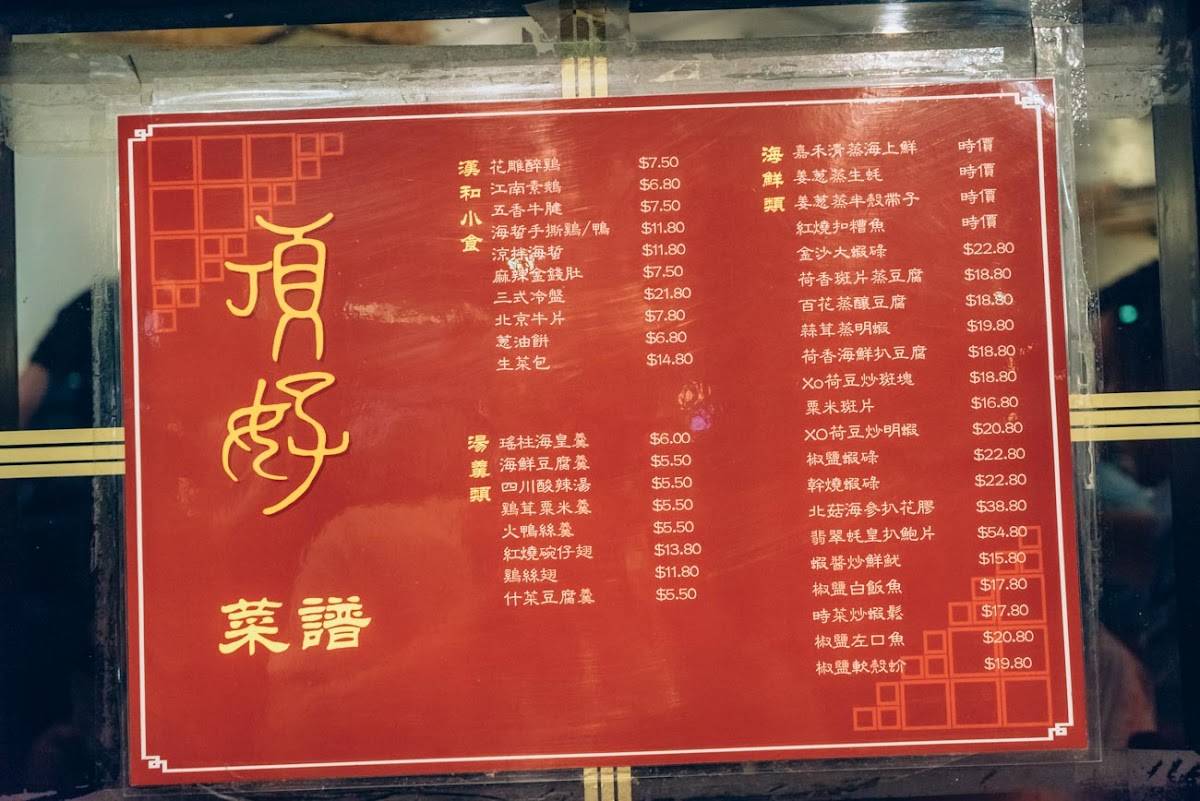 頂好
菜譜
漢和小食
花雕醉鷄 $7.50
江南素鵝 $6.80
五香牛腱 $7.50
海蜇手撕鷄/鴨 $11.80
涼拌海蜇 $11.80
麻辣金錢肚 $7.50
三式冷盤 $21.80
北京牛片 $7.80
蔥油餅 $6.80
生菜包 $14.80
湯羹類
瑤柱海皇羹 $6.00
海鮮豆腐羹 $5.50
四川酸辣湯 $5.50
鷄茸粟米羹 $5.50
火鴨絲羹 $5.50
紅燒碗仔翅 $13.80
鷄絲翅 $11.80
什菜豆腐羹 $5.50
海鮮類
嘉禾清蒸海上鮮 時價
姜蔥蒸生蚝 時價
姜蔥蒸半殼帶子 時價
紅燒扣糟魚 時價
金沙大蝦碌 $22.80
荷香斑片蒸豆腐 $18.80
百花蒸釀豆腐 $18.80
蒜茸蒸明蝦 $19.80
荷香海鮮扒豆腐 $18.80
Xo荷豆炒斑塊 $18.80
粟米斑片 $16.80
XO荷豆炒明蝦 $20.80
椒鹽蝦碌 $22.80
幹燒蝦碌 $22.80
北菇海參扒花膠 $38.80
翡翠蚝皇扒鮑片 $54.80
蝦醬炒鮮魷 $15.80
椒鹽白飯魚 $17.80
時菜炒蝦鬆 $17.80
椒鹽左口魚 $20.80
椒鹽軟殼蚧 $19.80